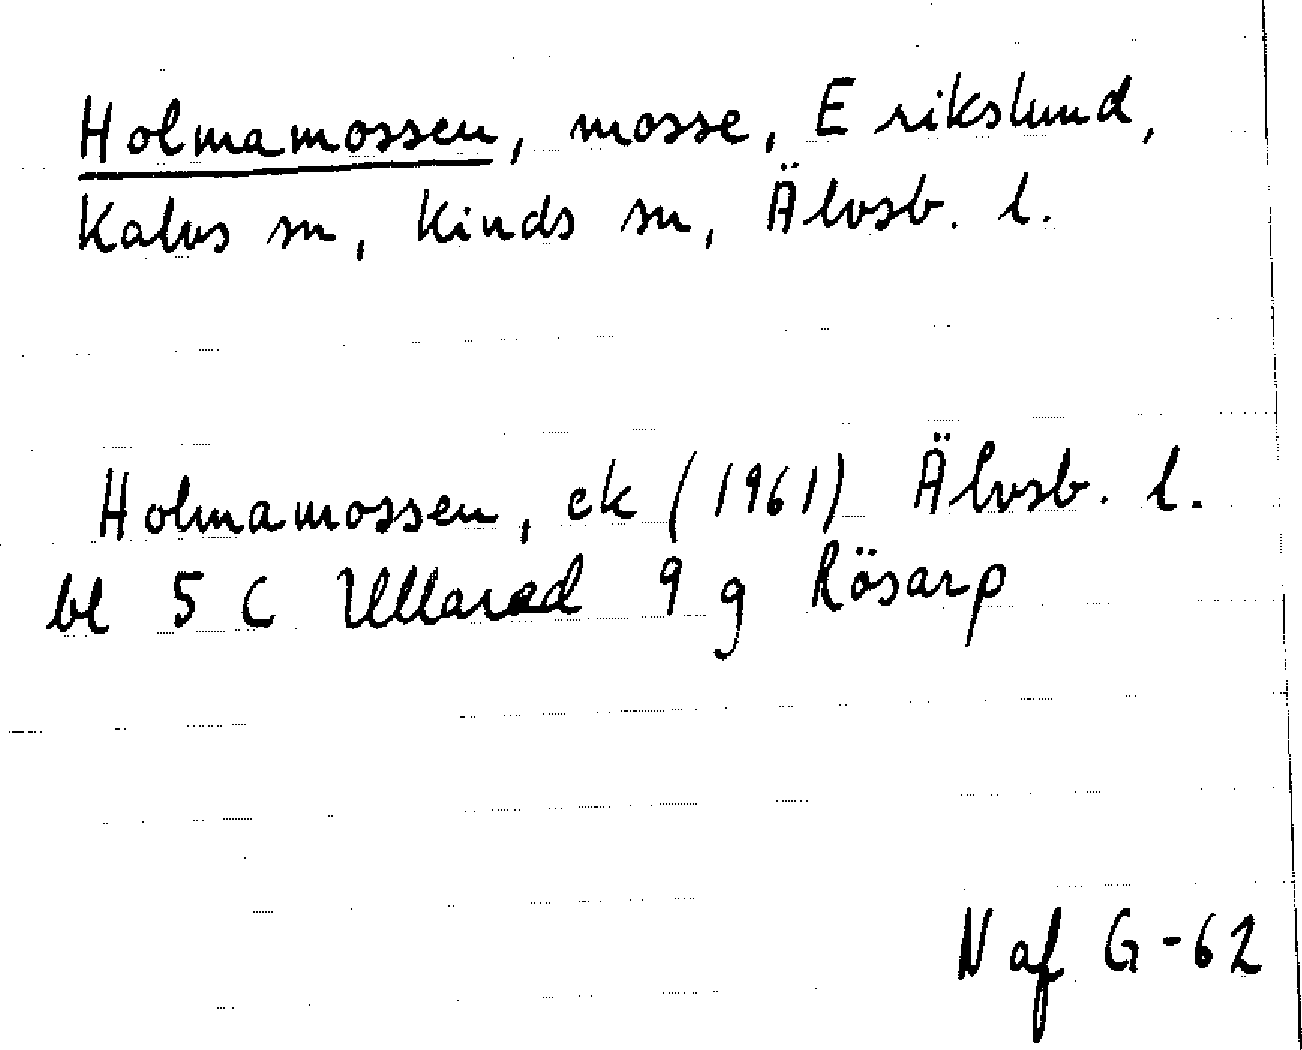 Holmamossen, mosse, Erikslund,
Kalvs sn, Kinds sn, Älvsb. l.
Holmamossen, ek (1961) Älvsb. l.
bl 5 C Ullared 9 g Rösarp
N af G-62